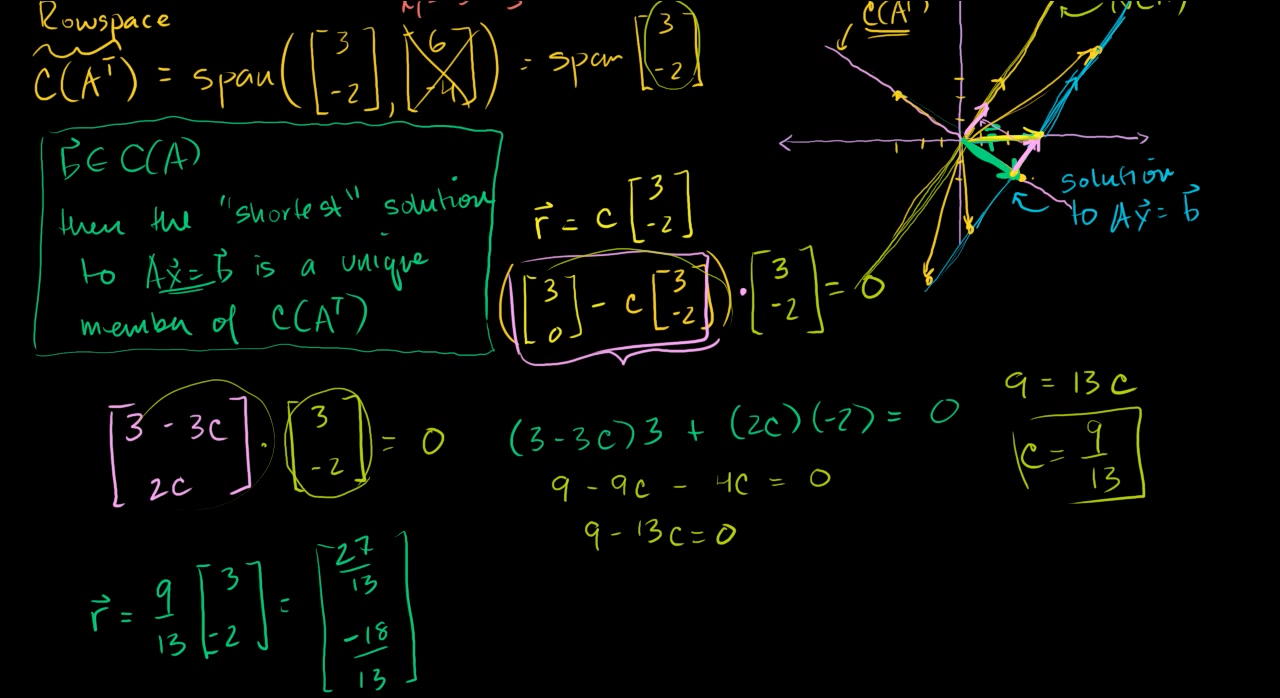 Rowspace
C(Aᵀ) = span([3 -2], [6 -4]) = span [3 -2]
C(Aᵀ)
b⃗ ∈ C(A)
then the "shortest" solution
to Ax⃗ = b⃗ is a unique
member of C(Aᵀ)
r⃗ = c [3 -2]
([3 0] - c [3 -2]) · [3 -2] = 0
solution
to Ax⃗ = b⃗
[3 - 3c 2c] · [3 -2] = 0
(3-3c)3 + (2c)(-2) = 0
9 - 9c - 4c = 0
9 - 13c = 0
9 = 13c
c = 9/13
r⃗ = 9/13 [3 -2] = [27/13 -18/13]